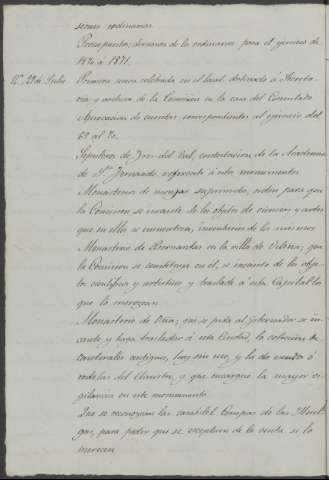 sesion ordinaria.
Presupuestos; decimos de lo ordinario para el ejercicio de
1870 á 1871.
12ª 22 de Julio Primera sesion celebrada en el local destinado á Secreta-
ria y archivo de la Comision en la casa del Consulado
Aprovacion de cuentas correspondientes al ejercicio del
69 al 70.
Sepulcro de Juan del Val, contestacion de la Academia
de Sn. Fernando referente á este monumento.
Monasterios de monjas suprimidos, orden para que
la Comision se incaute de los objetos de ciencias y artes
que en ellos se encuentran, inventarios de los mismos
Monasterio de Bernardas en la villa de Vileña; que
la Comision se constituya en él, se incaute de los obje-
tos cientificos y artisticos y traslade á esta Capital los
que lo merezcan
Monasterio de Oña; que se pida al gobernador se in-
caute y haga trasladar á esta Ciudad, la coleccion de
cantorales antiguos, hoy sin uso, y la de
del Claustro, y que encargue la mayor vi-
gilancia en este monumento.
Que se reconozcan las casas del Compas de las Huel-
gas, para pedir que se exceptuen de la venta si lo
merecen